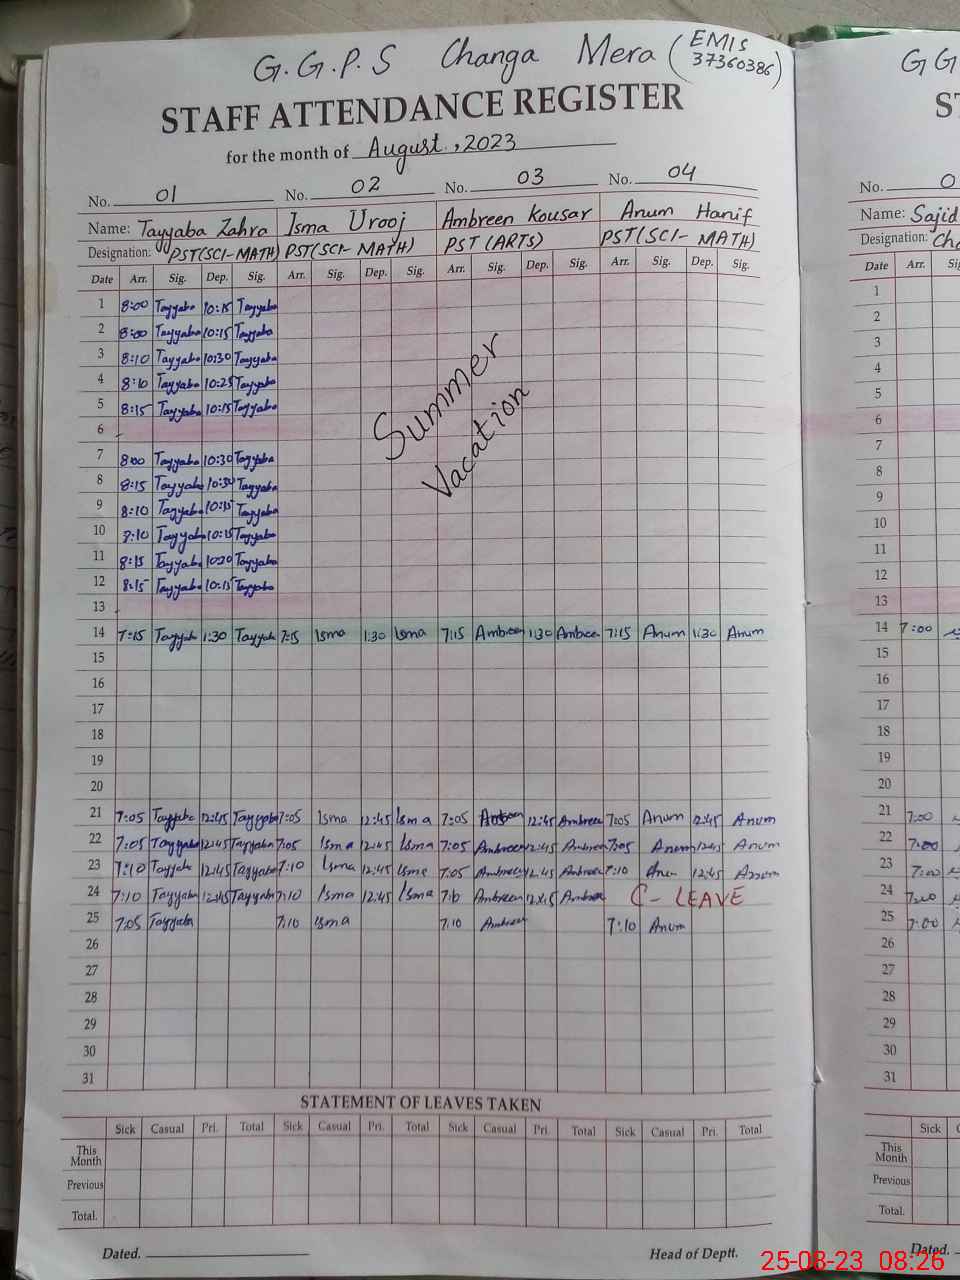 G.G.P.S Changa Mera (EMIS 37360386)
STAFF ATTENDANCE REGISTER
for the month of August, 2023
No. 01 No. 02 No. 03 No. 04
Name: Tayyaba Zahra Isma Urooj Ambreen Kousar Anum Hanif
Designation: PST(SCI-MATH) PST(SCI-MATH) PST(ARTs) PST(SCI-MATH)
Date Arr. Sig. Dep. Sig. Arr. Sig. Dep. Sig. Arr. Sig. Dep. Sig. Arr. Sig. Dep. Sig.
1 8:00 Tayyaba 10:15 Tayyaba
2 8:00 Tayyaba 10:15 Tayyaba
3 8:10 Tayyaba 10:30 Tayyaba
4 8:10 Tayyaba 10:25 Tayyaba
5 8:15 Tayyaba 10:15 Tayyaba
6
7 8:00 Tayyaba 10:30 Tayyaba
8 8:15 Tayyaba 10:30 Tayyaba
9 8:10 Tayyaba 10:15 Tayyaba
10 8:10 Tayyaba 10:15 Tayyaba
11 8:15 Tayyaba 10:20 Tayyaba
12 8:15 Tayyaba 10:15 Tayyaba
13
Summer
Vacation
14 7:15 Tayyaba 1:30 Tayyaba 7:15 Isma 1:30 Isma 7:15 Ambreen 1:30 Ambreen 7:15 Anum 1:30 Anum
15
16
17
18
19
20
21 7:05 Tayyaba 12:45 Tayyaba 7:05 Isma 12:45 Isma 7:05 Ambreen 12:45 Ambreen 7:05 Anum 12:45 Anum
22 7:05 Tayyaba 12:45 Tayyaba 7:05 Isma 12:45 Isma 7:05 Ambreen 12:45 Ambreen 7:05 Anum 12:45 Anum
23 7:10 Tayyaba 12:45 Tayyaba 7:10 Isma 12:45 Isma 7:05 Ambreen 12:45 Ambreen 7:10 Anum 12:45 Anum
24 7:10 Tayyaba 12:45 Tayyaba 7:10 Isma 12:45 Isma 7:10 Ambreen 12:45 Ambreen C-LEAVE
25 7:05 Tayyaba 7:10 Isma 7:10 Ambreen 7:10 Anum
26
27
28
29
30
31
STATEMENT OF LEAVES TAKEN
Sick Casual Pri. Total Sick Casual Pri. Total Sick Casual Pri. Total Sick Casual Pri. Total
This Month
Previous
Total.
Dated. Head of Deptt.
GG
ST
No. 0
Name: Sajid
Designation: Cho
Date Arr.
1
2
3
4
5
6
7
8
9
10
11
12
13
14 7:00
15
16
17
18
19
20
21 7:00
22 7:00
23 7:00
24 7:00
25 7:00
26
27
28
29
30
31
Sick C
This Month
Previous
Total.
Dated.
25-08-23 08:26